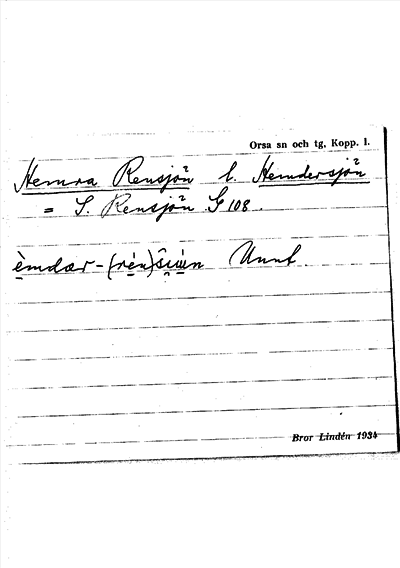 Orsa sn och tg, Kopp. l.
Hemra Rensjön l. Hemdersjön
= S. Rensjön G 108.
èmdær-(rén)
Bror Lindén 1934